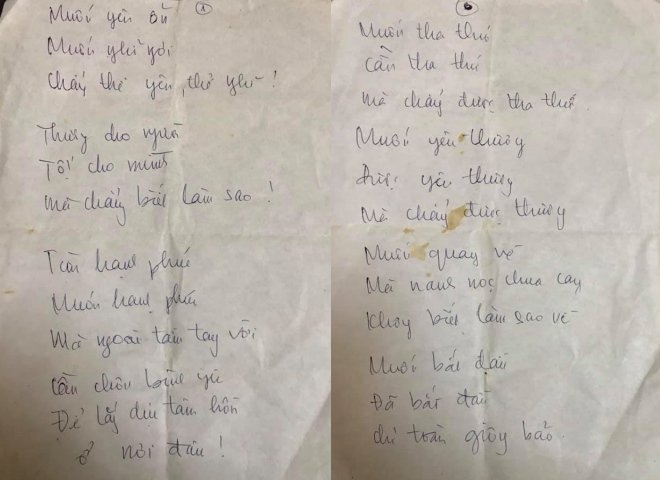 1
Muốn yên ổn
Muốn nghỉ ngơi
Chẳng thể yên, thể nghỉ!
Thương cho người
Tội cho mình
Mà chẳng biết làm sao!
Tìm hạnh phúc
Muốn hạnh phúc
Mà ngoài tầm tay với
Cần chốn bình yên
Để lắng dịu tâm hồn
Ở nơi đâu!
Muốn tha thứ
Cần tha thứ
Mà chẳng được tha thứ.
Muốn yêu thương
Được yêu thương
Mà chẳng được thương
Muốn quay về
Mà nanh nọc chua cay
Không biết làm sao về
Muốn bắt đầu
Đã bắt đầu
chỉ toàn giông bão.